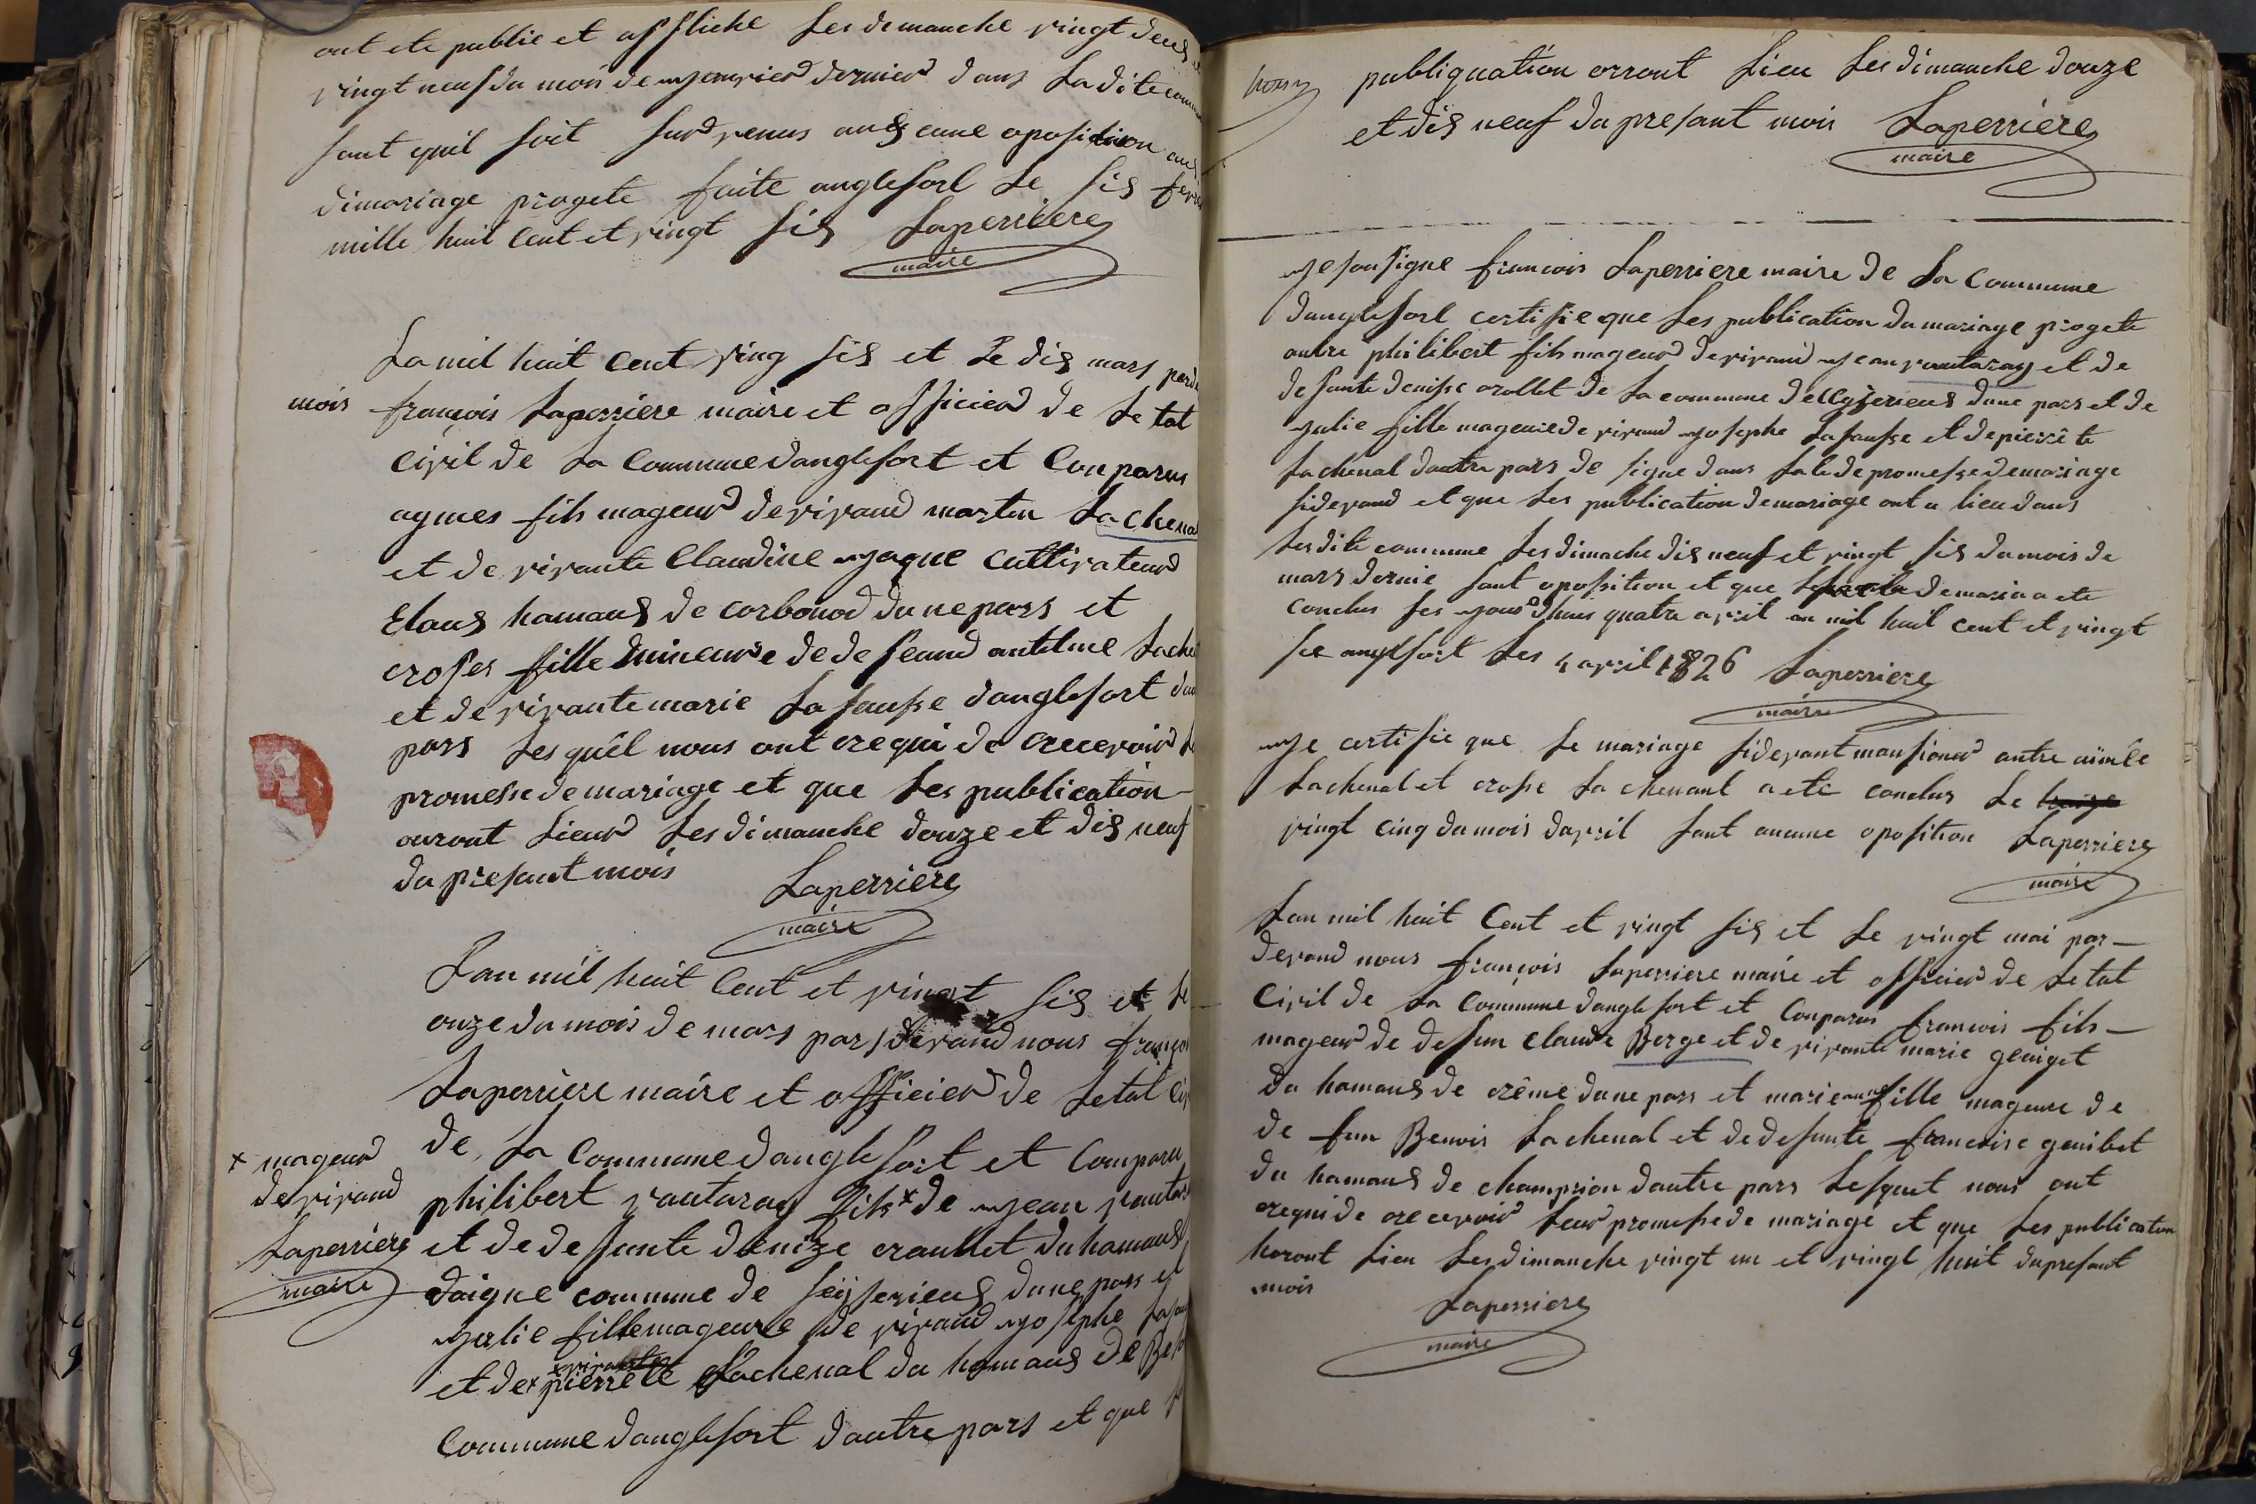 ont ete publie et affliche les dimanche vingt deux
vingt neuf du mois de jenvried dernied dans la dite
sant quil soit surd venus auxcune oposition
dimariage progete faite anglesorl le six
mille huit cent et vingt six Laperriere
maire
La mil huit cent ving six et Le dix mars
mois françois Laperriere maire et officied de Le tat
civil de La commune danglefort et conparus
aymes fils mageurd de vivand martin La chena
et de vivante Claudine jaque cultivateurd
haumaux de corbonod dune pars et
croses fille mineure de de feand antelme Lache
et de vivante marie La sausse danglefort
pars Les quêl nous ont requi de recevoird
promesse de mariage et que Les publication
ouront Lieurd Les dimanche douze et dix neuf
du presant mois Laperriere
maire
Lan mil huit Cent et vingt six et Le
onze du mois de mars pars devand nous
Laperriere maire et officied de Letat
de La Commune danglefort et Comparu
x mageurd
de vivand
Laperriere
maire
philibert vautaray fils x de jean
et de defunte denize craullet du hamaux
daigue commune de seijserieux dune pars et
julie fille mageure de vivand josephe
et de x vivante pierrete Lachenal du hamaux de
Commune danglefort dautre pars et que
publiquation orront Lieu Les dimanche douze
et dix neuf du presant mois Laperriere
maire
je sousigne francois Laperriere maire de La Commune
danglesorl certifie que Les publication du mariage progete
antre philibert fils mageurd de vivand jean vautaray et de
defunte denise crollet de La commune dune pars et de
julie fille mageure de vivand josephe Lasausse et de pierrête
Lachenal dautre pars de signe dans de promesse de mariage
sidevand et que Les publication de mariage ont u lieu dans
Les dite commune Les dimache dix neuf et vingt six du mois de
mars dernie sant oposition et que de maria a ete
conclus Les jourd huis quatre avril an mil huit cent et vingt
six Les 4 avril 1826 Laperriere
maire
je certifie que Le mariage sidevant mansionerd antre
Lachenal et crose La chenant a ete conclus Le
vingt cinq du mois davril sant aucune oposition Laperriere
maire
Lan mil huit Cent et vingt six et Le vingt mai par-
devand nous françois Laperriere maire et officied de Letat
Civil de La Commune danglefort et Conparus francois fils
mageurd de defun claude Berge et de vivante marie geniget
du hamaux de crême dune pars et marieanne fille mageure de
de fun Benois Lachenal et de defunte francoise genibet
du hamaux de champrion dautre pars Lesquel nous ont
requi de recevoird Leurd promesse de mariage et que Les publication
horont Lieu Les dimanche vingt un et vingt huit du presant
mois Laperriere
maire